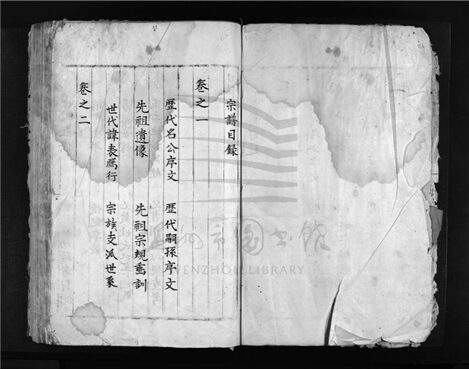 宗譜目錄
卷之一
歷代名公序文 歷代嗣孫序文
先祖遺像 先祖宗規垂訓
世代諱表鴈行 宗族支派世系
卷之二
溫州市圖书館
WENZHOU LIBRARY